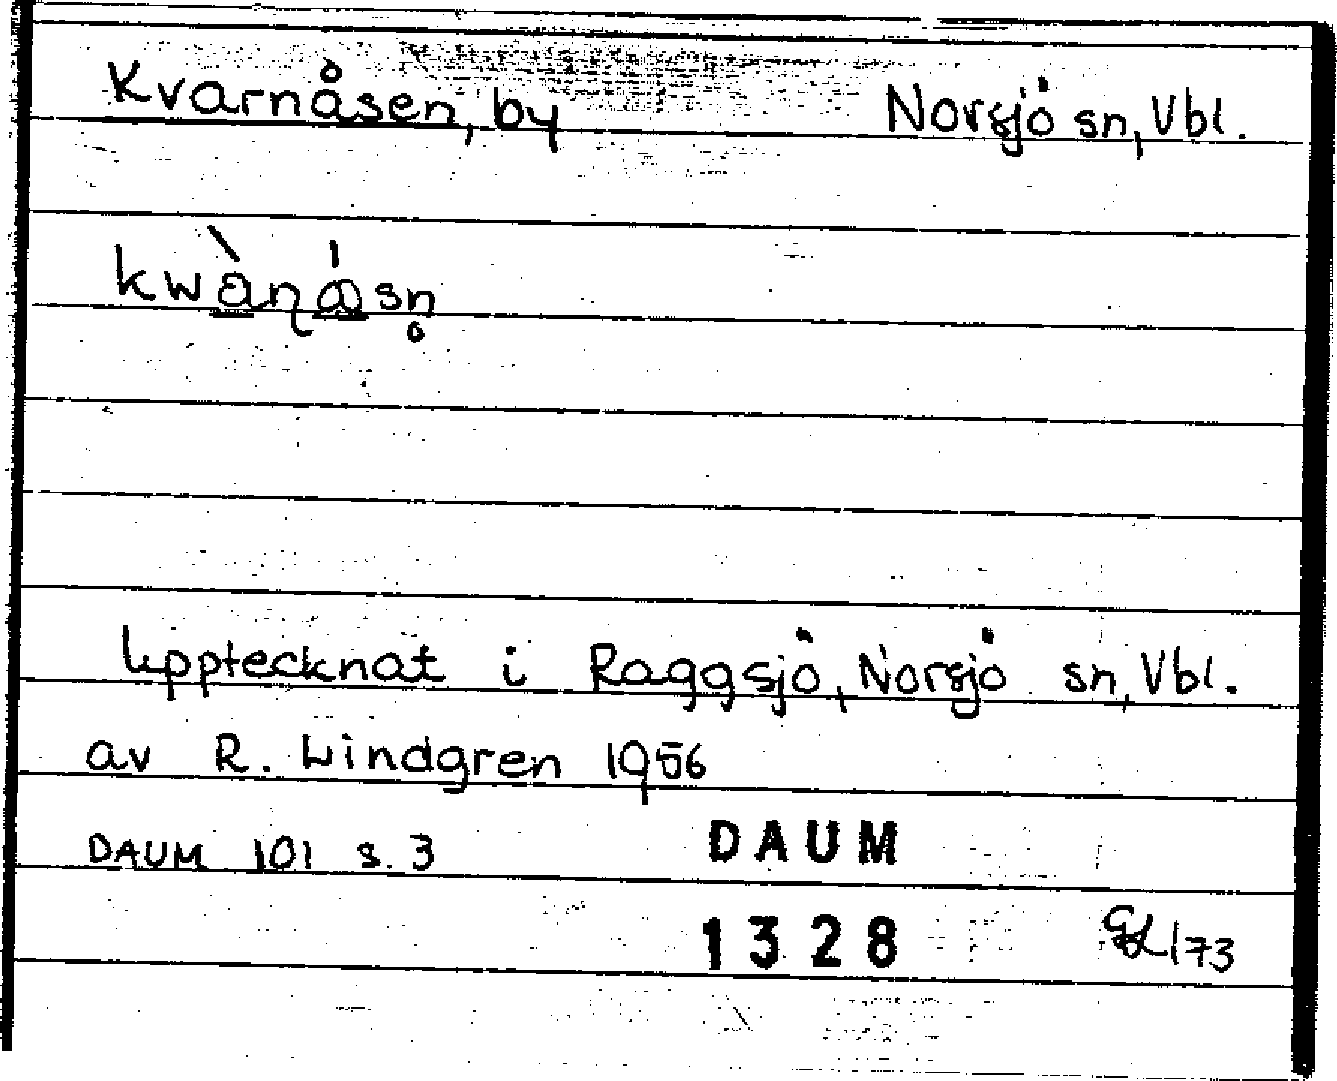 Kvarnåsen, by Norsjö sn, Vbl.
kwàɳásn̥
Upptecknat i Raggsjö, Norsjö sn, Vbl.
av R. Lindgren 1956
DAUM 101 s. 3 DAUM
1328 /73